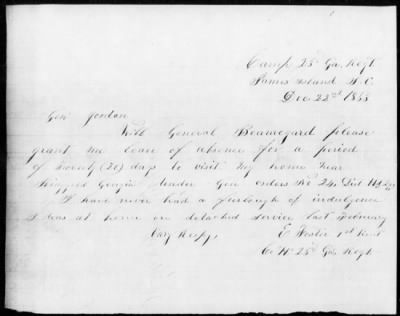 Camp 25th Ga. Regt
James Island S.C.
Dec 22nd 1863
Gen Jordon
Will General Beauregard please
grant me leave of absence for a period
of twenty (20) days to visit my home near
Georgia under Gen orders No 24.
I have never had a furlough of indulgence
I was at home on detached service last February
Very Resp.
E 1st Lieut
Co. H 25th Ga. Regt